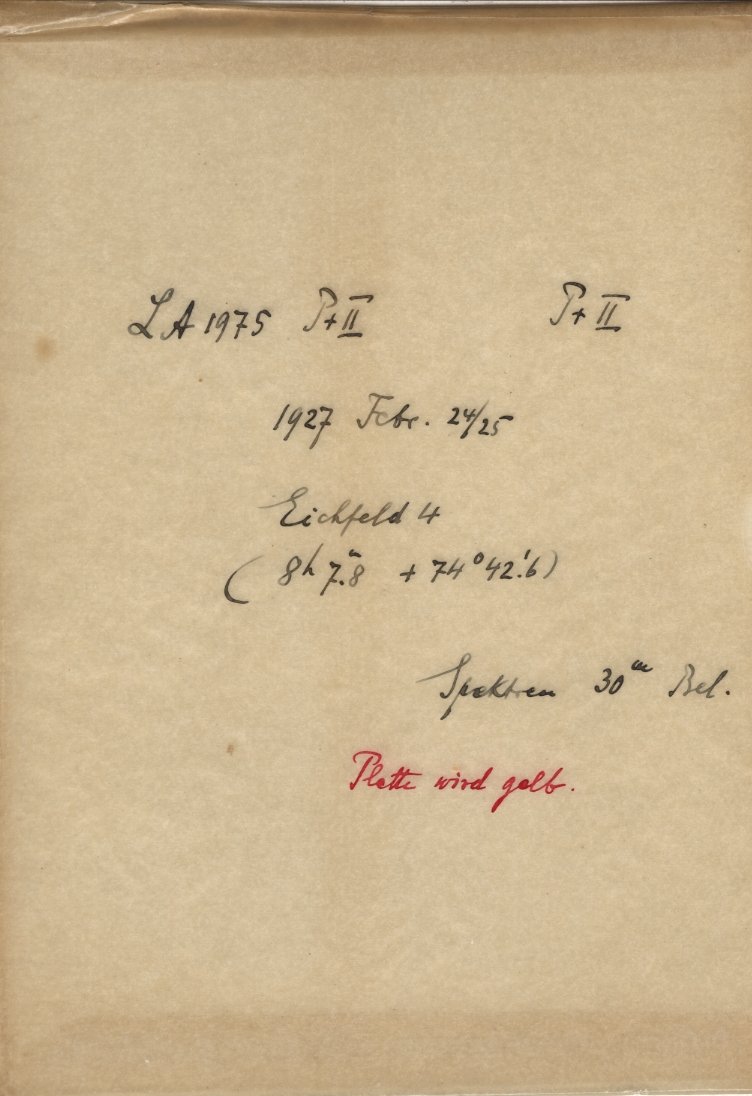 LA 1975 P+II P+II
1927 Febr. 24/25
Eichfeld 4
( 8h 7.ᵐ8 + 74° 42.'6)
Spektren 30ᵐ Bel.
Platte wird gelb.